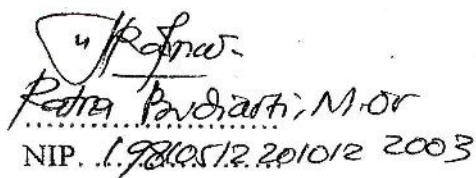 Ratna Budiarti, M.Or
NIP. 19810512 201012 2003